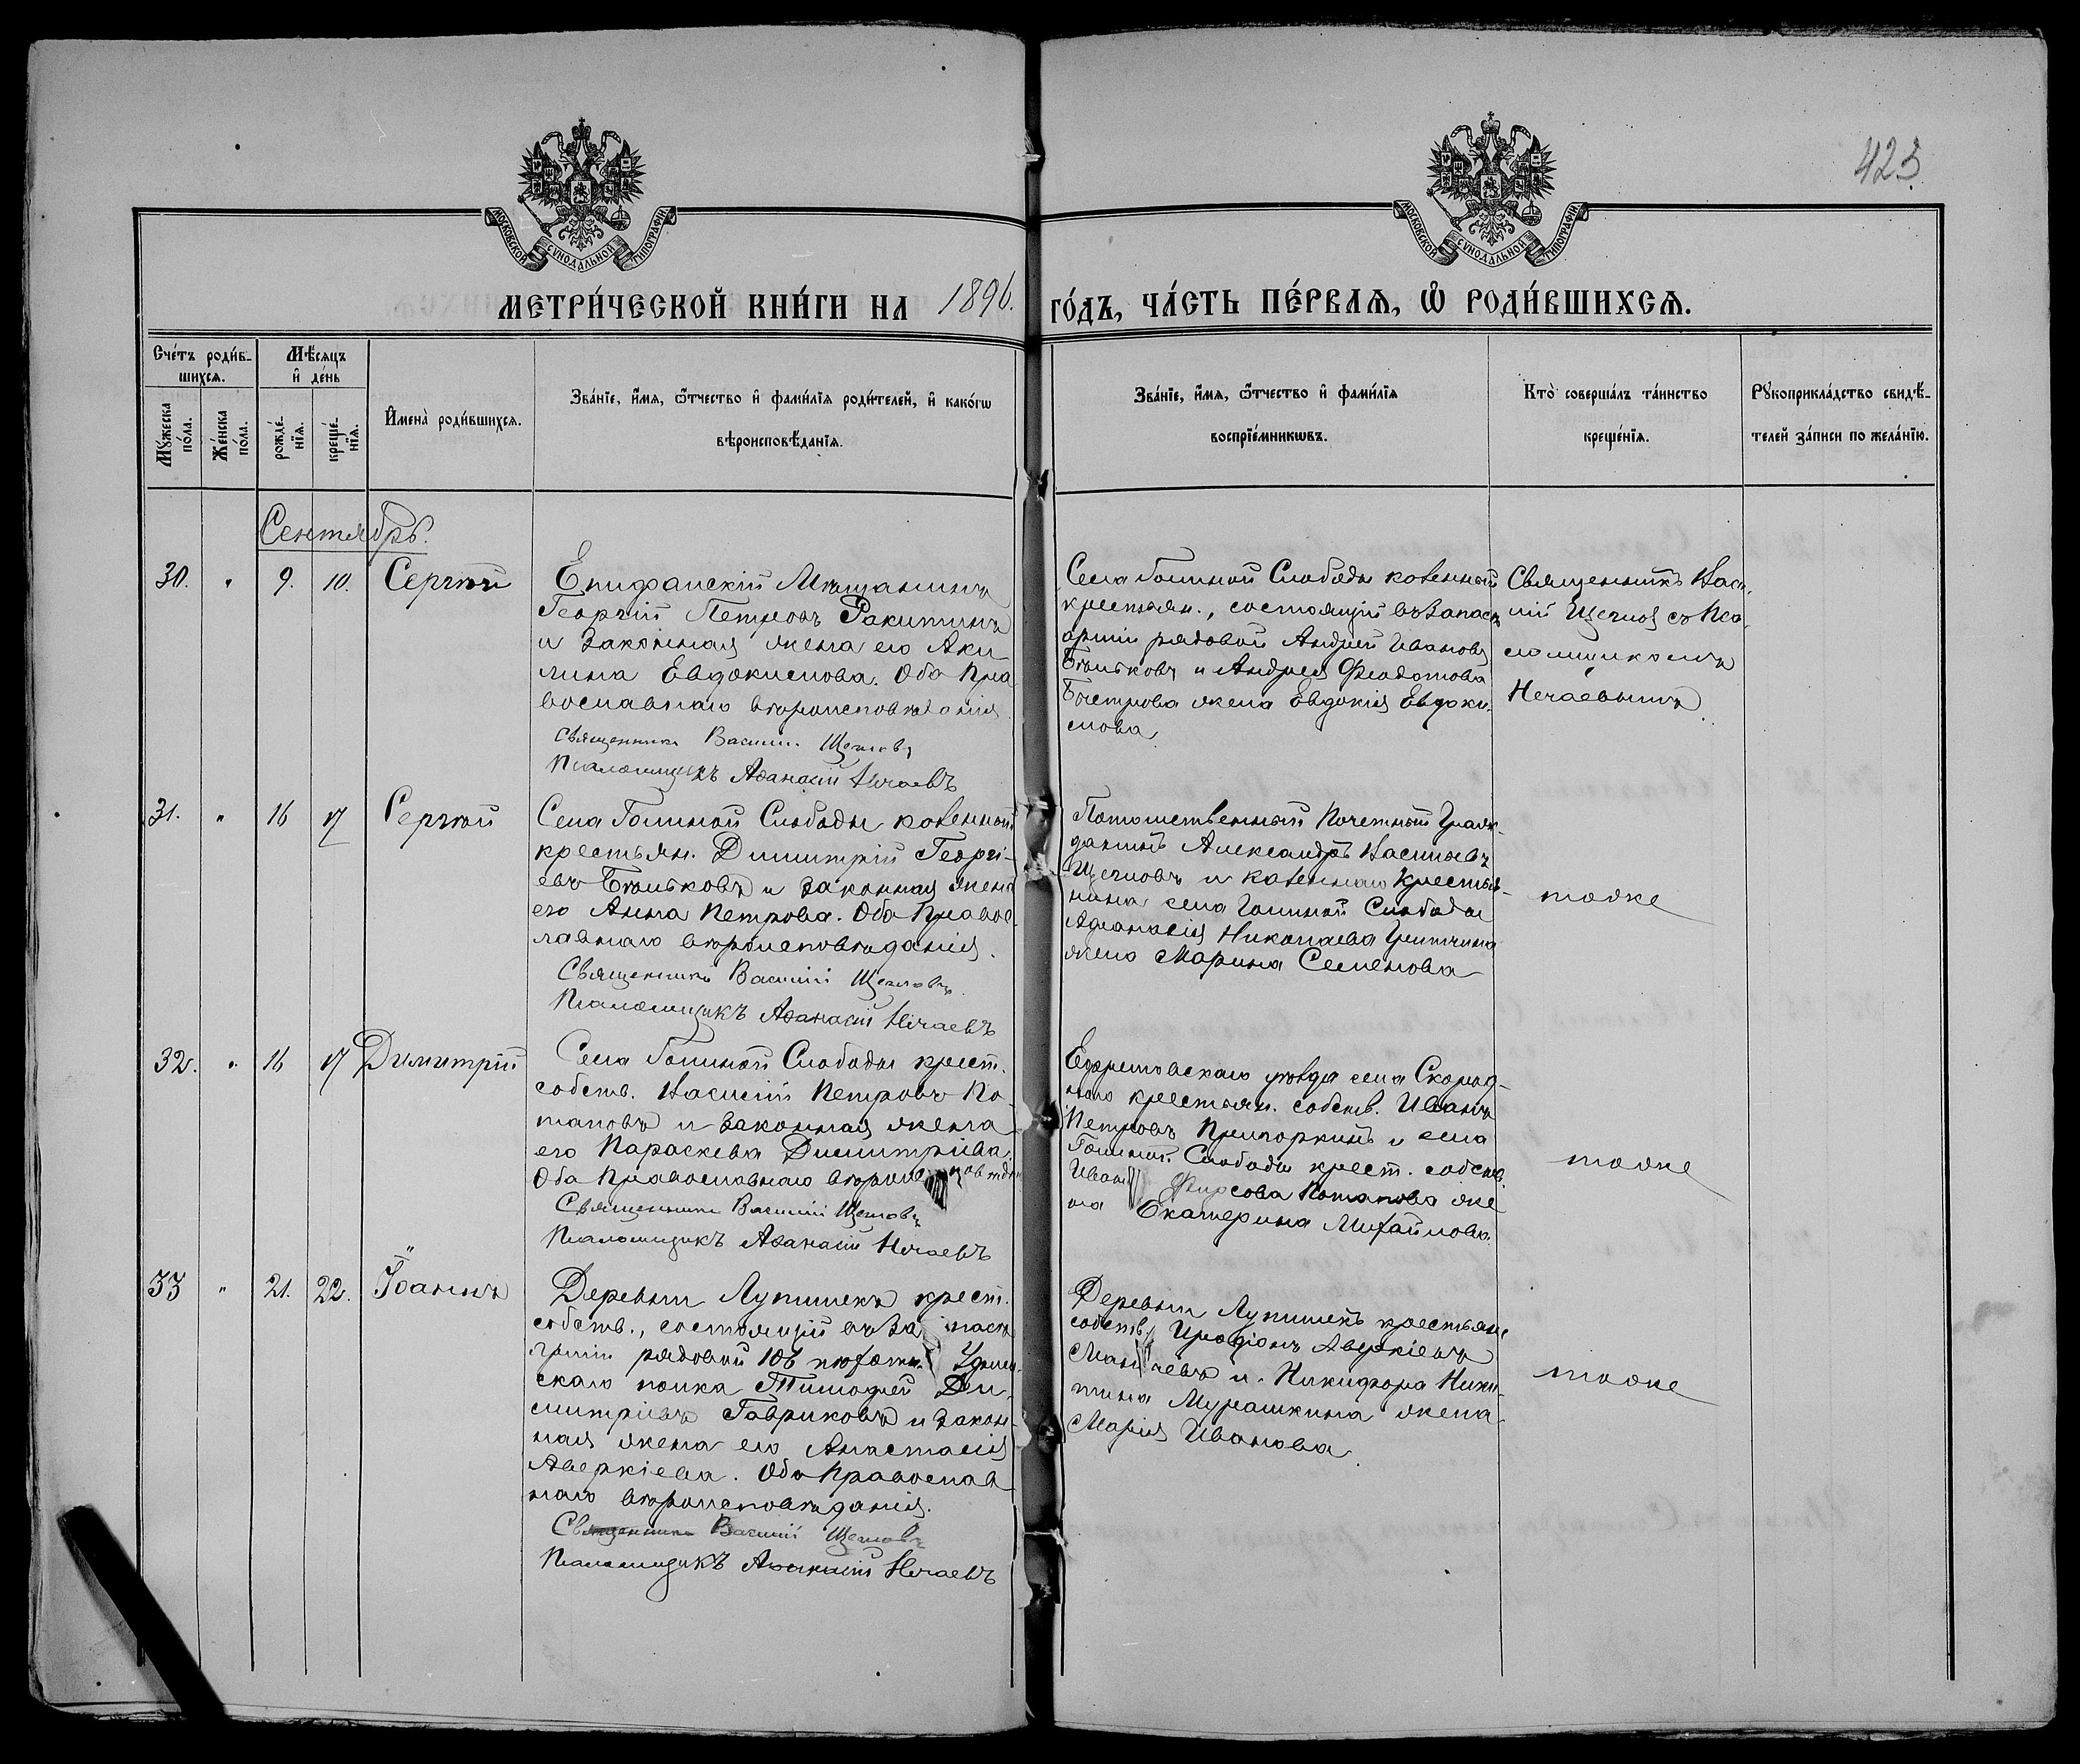 423
МОСКОВСКОЙ СѴНОДАЛЬНОЙ ТИПОГРАФІИ
МОСКОВСКОЙ СѴНОДАЛЬНОЙ ТИПОГРАФІИ
МЕТРИ́ЧЕСКОЙ КНИ́ГИ НА 1896. ГО́ДЪ, ЧА́СТЬ ПЕ́РВАѦ, Ѡ҆ РОДИ́ВШИХСѦ.
Сче́тъ роди́в-
шихсѧ.
Мꙋжеска по́ла.
Же́нска по́ла.
Мѣ́сѧцъ
и҆ де́нь
рожде́-
нїѧ.
креще́-
нїѧ.
И҆мена̀ роди́вшихсѧ.
Зва́нїе, и҆́мѧ, ѻ҆́тчество и҆ фами́лїѧ роди́телей, и҆ како́гѡ
вѣроисповѣ́данїѧ.
Зва́нїе, и҆́мѧ, ѻ҆́тчество и҆ фами́лїѧ
воспрїе́мникѡвъ.
Кто̀ соверша́лъ та́инство
креще́нїѧ.
Рꙋкоприкла́дство свидѣ́-
телей за́писи по жела́нїю.
Сентябрь.
30. " 9. 10. Сергѣй
Епифанскій Мѣщанинъ
Георгій Петровъ Ракитинъ
и законная жена его Аки-
лина Евдокимова. Оба пра-
вославнаго вѣроисповѣданія
Священникъ Василій Щегловъ
Псаломщикъ Аѳанасій Нечаевъ
Села Голиной Слободы казенный
крестьян., состоящій въ запасѣ
арміи рядовой Андрей Ивановъ
и Андрея Федотова
жена Евдокія Евдоки-
мова
Священникъ Васи-
лій Щегловъ съ Пса-
ломщикомъ
Нечаевымъ
31. " 16 17 Сергѣй
Села Голиной Слободы казенный
крестьян. Димитрій Георгі-
евъ и законная жена
его Анна Петрова. Оба Правос-
лавнаго вѣроисповѣданія.
Священникъ Василій Щегловъ
Псаломщикъ Аѳанасій Нечаевъ
Потомственный Почетный Граж-
данинъ Александръ Васильевъ
Щегловъ и казеннаго крестья-
нина села Голиной Слободы
Афанасія Николаева
жена Марина Семенова
тоже
32. " 16 17 Димитрій
Села Голиной Слободы крест.
собств. Василій Петровъ По-
таповъ и законная жена
его Параскева Димитріева.
Оба Православнаго
Священникъ Василій Щегловъ
Псаломщикъ Аѳанасій Нечаевъ
Ефремовскаго уѣзда села Скород-
наго крестьян. собств. Иванъ
Петровъ и села
Голиной Слободы крест. собств.
Ивана Фирсова Потапова же-
на Екатерина Михайлова.
тоже
33 " 21. 22. Іоаннъ
Деревни Лупишекъ крест.
собств., состоящій въ запасѣ
арміи рядовой 106 пѣхотн.
скаго полка Тимофей Ди-
митріевъ Гавриковъ и закон-
ная жена его Анастасія
Аверкіева. Оба Православ-
наго вѣроисповѣданія.
Священникъ Василій Щегловъ
Псаломщикъ Аѳанасій Нечаевъ
Деревни Лупишекъ крестьян.
собств. Иродіонъ Аверкіевъ
и Никифора Ники-
тина Мурашкина жена
Марія Иванова.
тоже